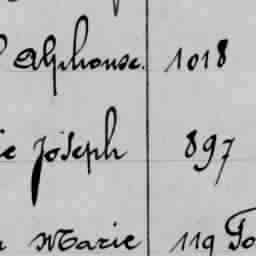 Alphonse. 1018
Joseph 897
Marie 119